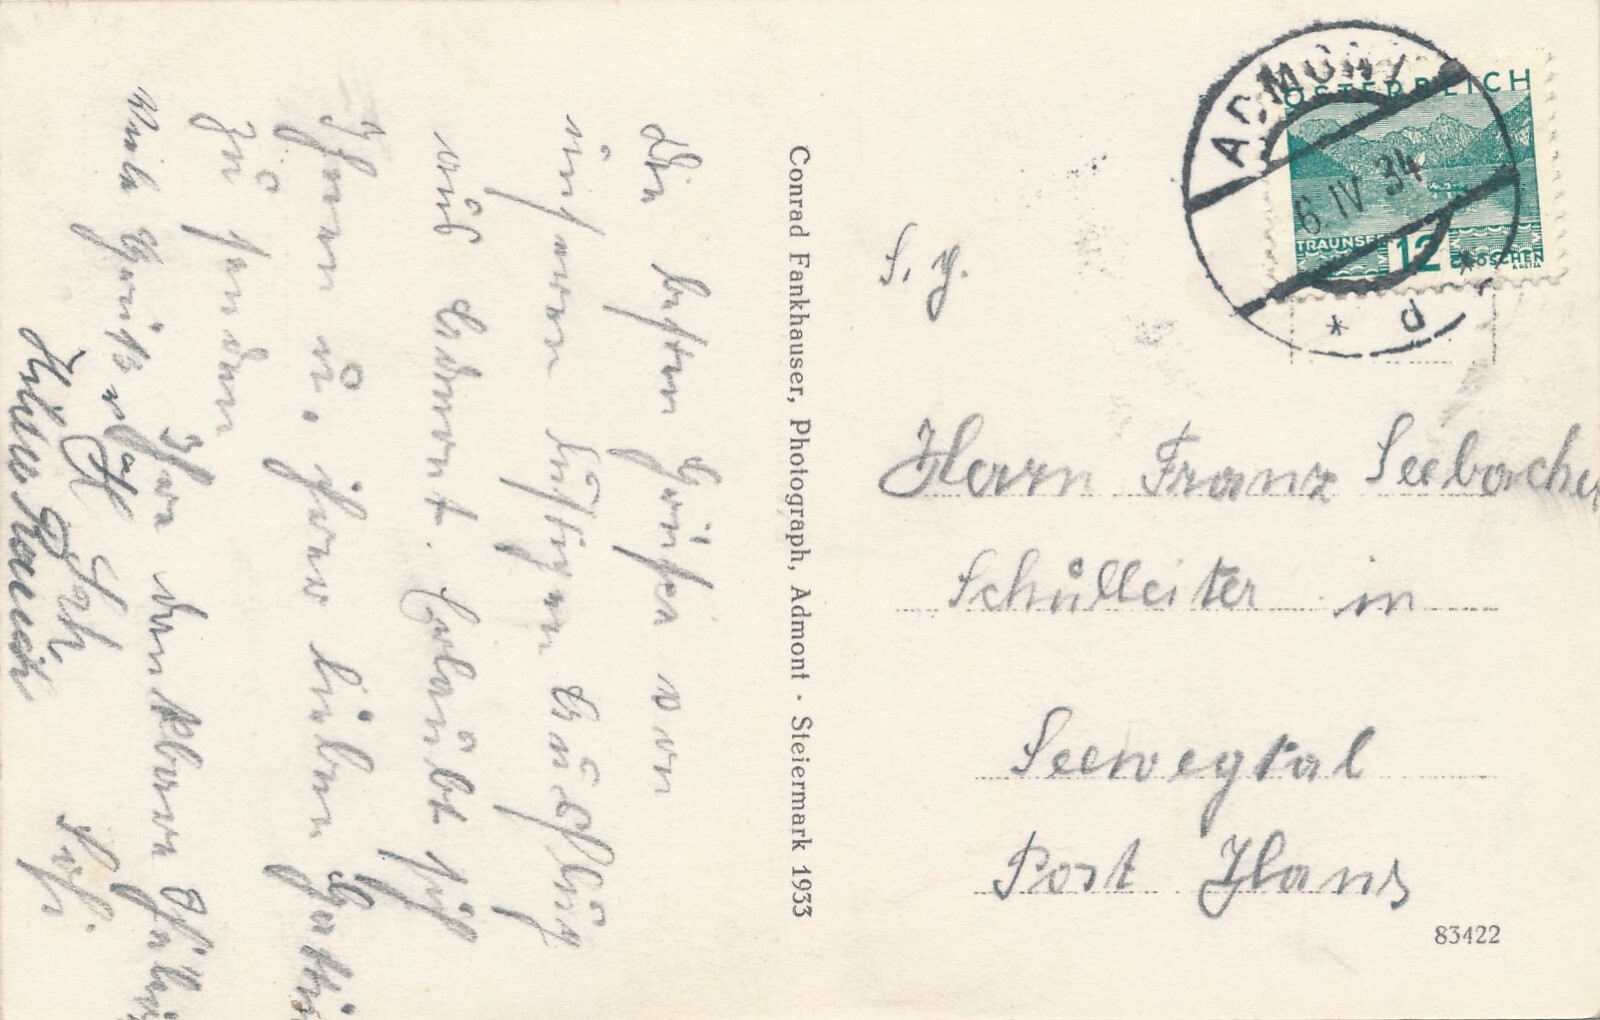 Die besten Grüße von
unserem lustigen Ausflug
aus Admont. Erlaubt sich
Ihnen u. ihrer lieben Gattin
zu senden
Ihre dankbare Schülerin
Viele Grüße
Hilde
Conrad Fankhauser, Photograph, Admont · Steiermark 1933
ADMONT
6 IV 34
* d *
ÖSTERREICH
TRAUNSEE 12 GROSCHEN
S. g.
Herrn Franz Seebacher
Schulleiter in
Seewegtal
Post Haus
83422